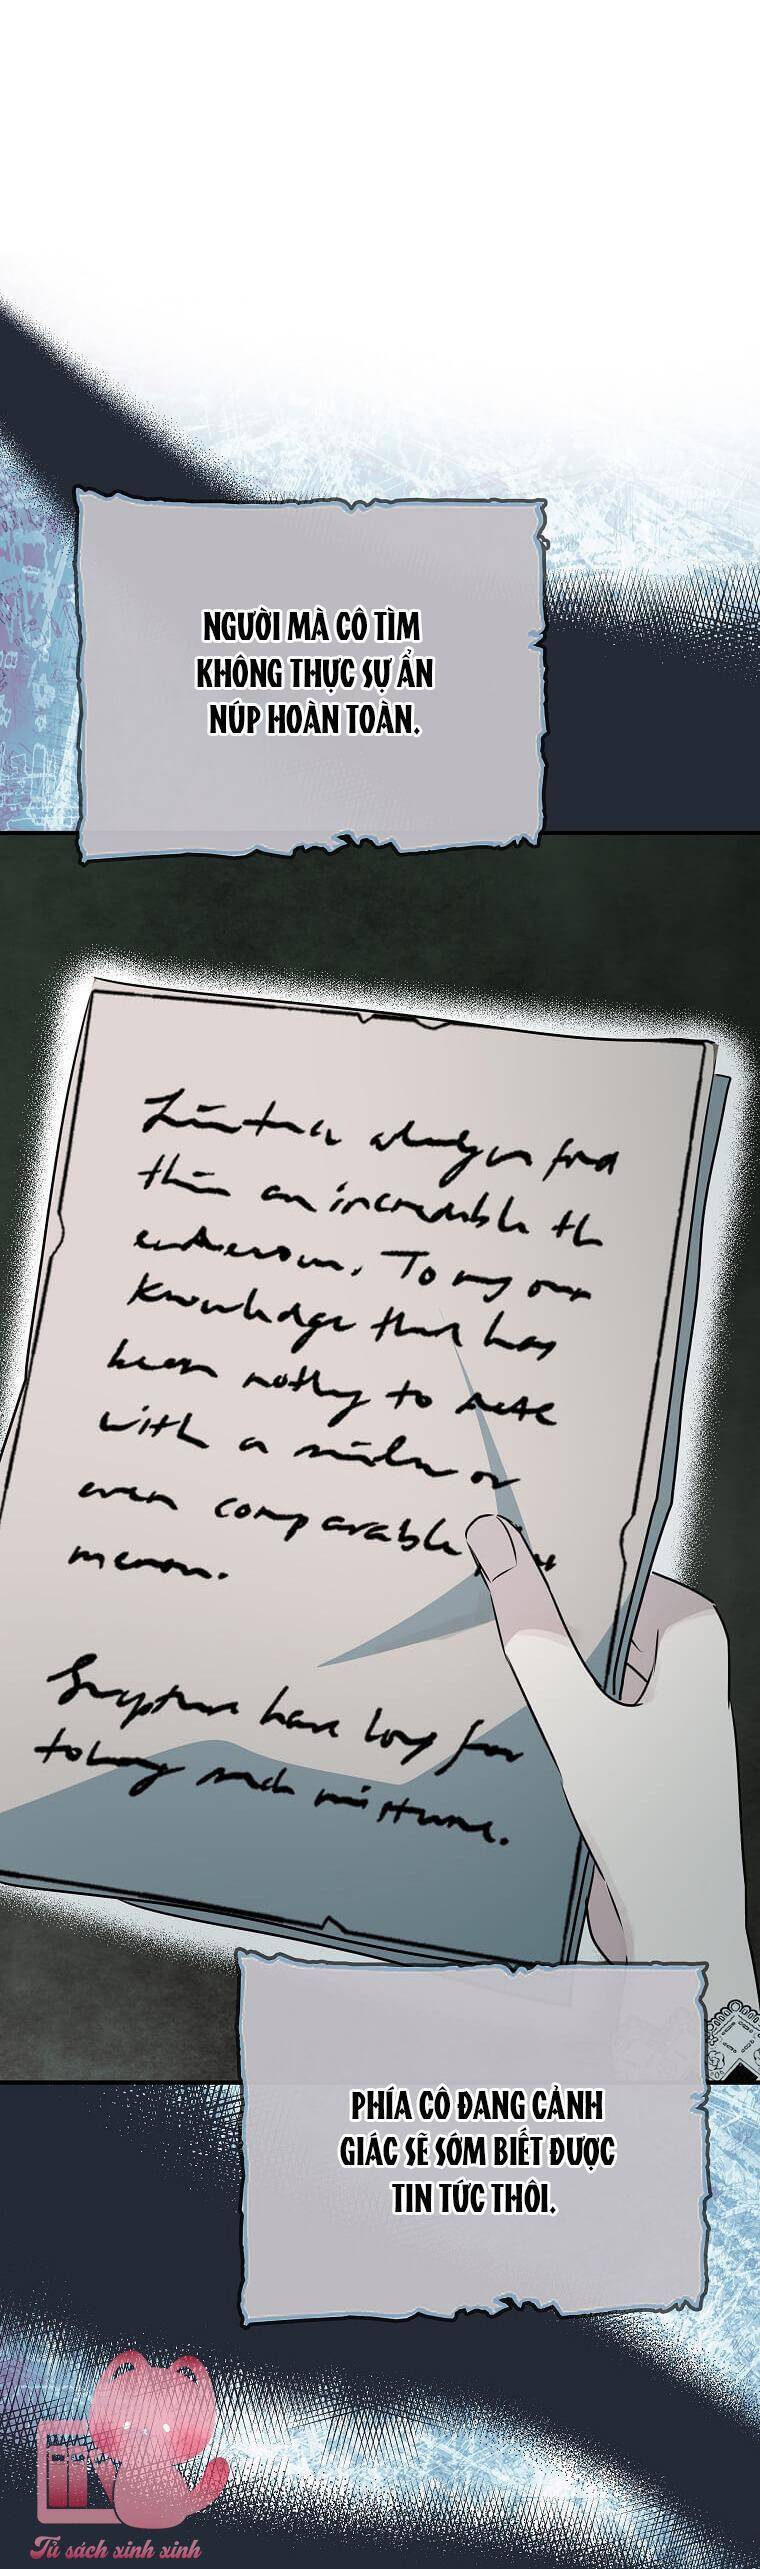 NGƯỜI MÀ CÔ TÌM
KHÔNG THỰC SỰ ẨN
NÚP HOÀN TOÀN.
find
this an incredible th
. To my own
knowledge there has
been nothing to
with a similar or
even comparable
have long
such mixture.
PHÍA CÔ ĐANG CẢNH
GIÁC SẼ SỚM BIẾT ĐƯỢC
TIN TỨC THÔI.
Tủ sách xinh xinh